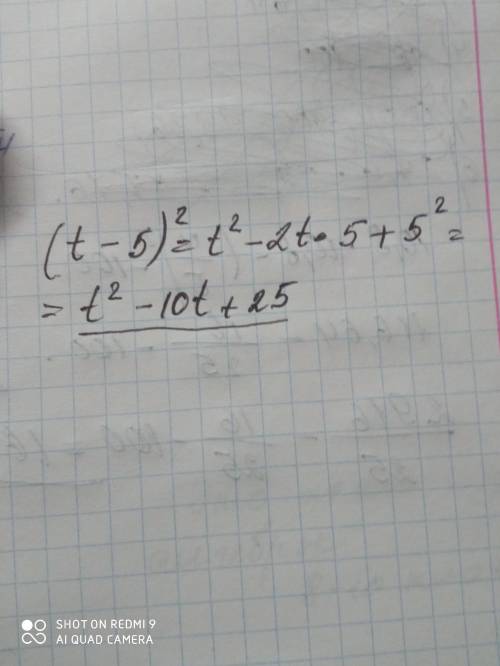 (t - 5)² = t² - 2t · 5 + 5² =
= t² - 10t + 25
SHOT ON REDMI 9
AI QUAD CAMERA